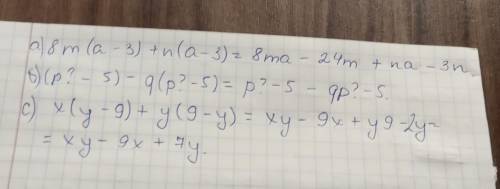 a) 8m(a-3)+n(a-3)=8ma-24m+na-3n.
b) (p?-5)-q(p?-5)=p?-5-qp?-5.
c) x(y-9)+y(9-y)=xy-9x+y9-2y=
=xy-9x+7y.